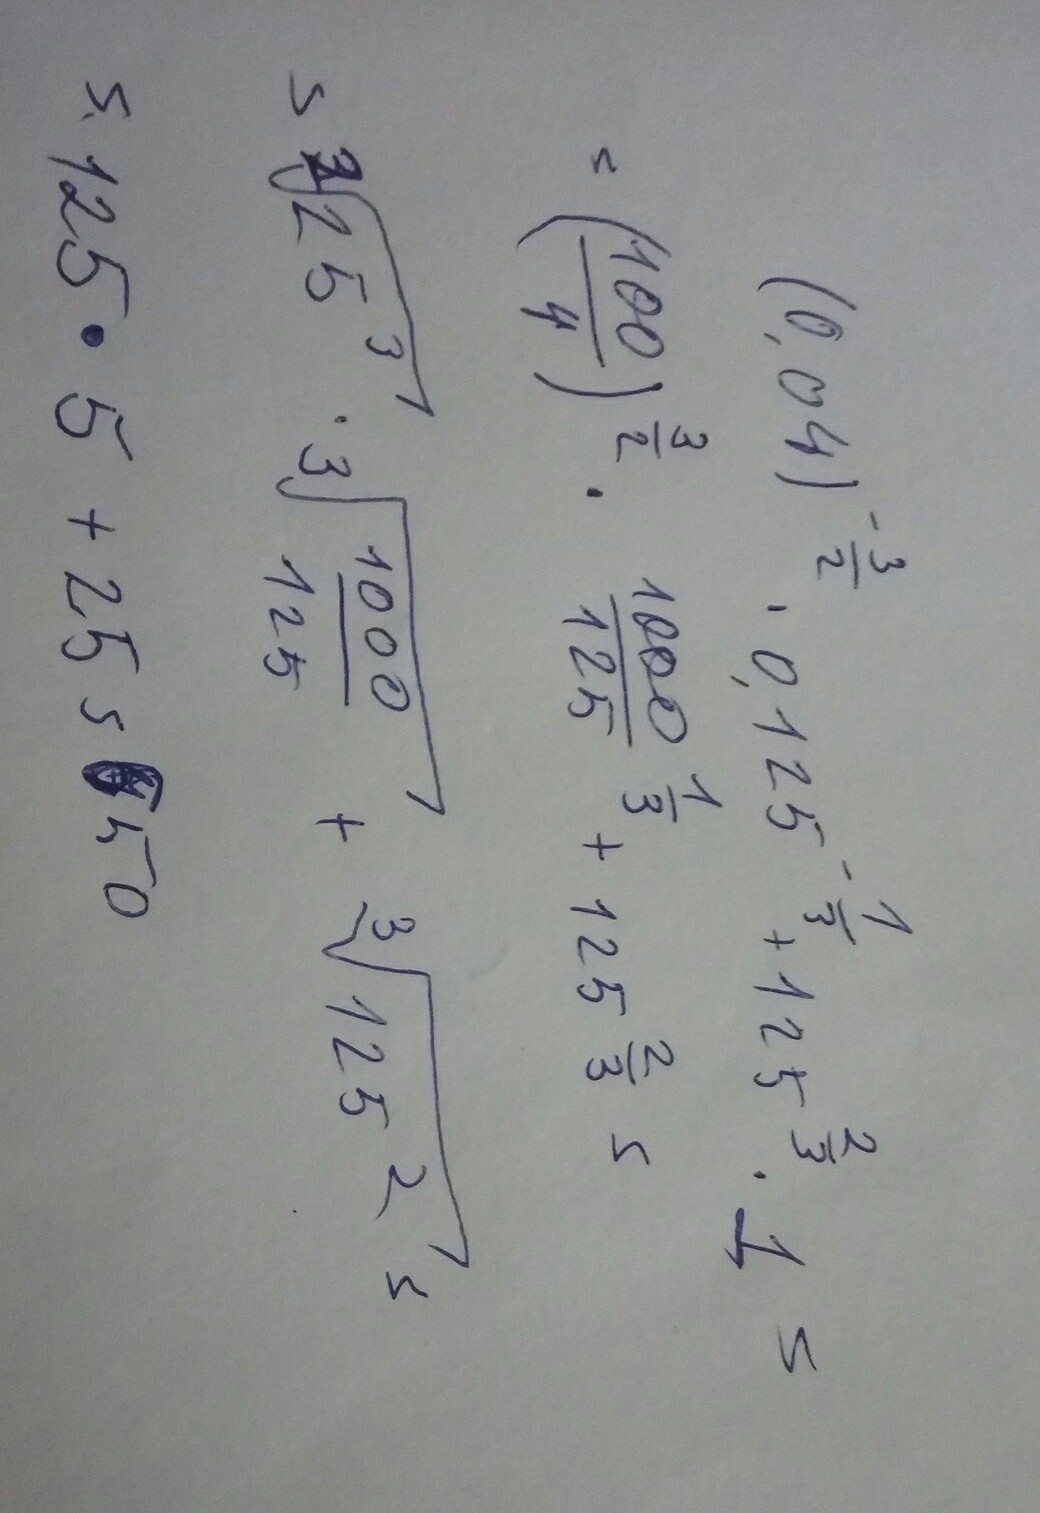 (0,04)^{-\frac{3}{2}} · 0,125^{-\frac{1}{3}} + 125^{\frac{2}{3}} · 1 =
= (\frac{100}{4})^{\frac{3}{2}} · \frac{1000}{125}^{\frac{1}{3}} + 125^{\frac{2}{3}} =
= \sqrt[2]{25^3} · \sqrt[3]{\frac{1000}{125}} + \sqrt[3]{125^2} =
= 125 · 5 + 25 = 650